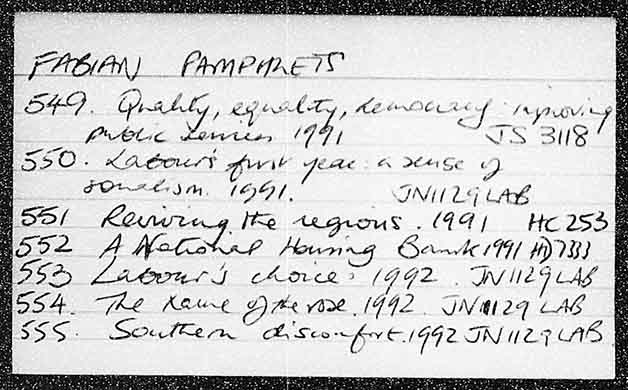 FABIAN PAMPHLETS
549. Quality, equality, democracy: improving
public services 1991 JS 3118
550. Labour's first year: a sense of
socialism. 1991. JN1129LAB
551 Reviving the regions. 1991 HC253
552 A National Housing Bank 1991 HD7333
553 Labour's choice: 1992. JN1129LAB
554. The name of the rose. 1992. JN1129 LAB
555. Southern discomfort. 1992 JN1129LAB